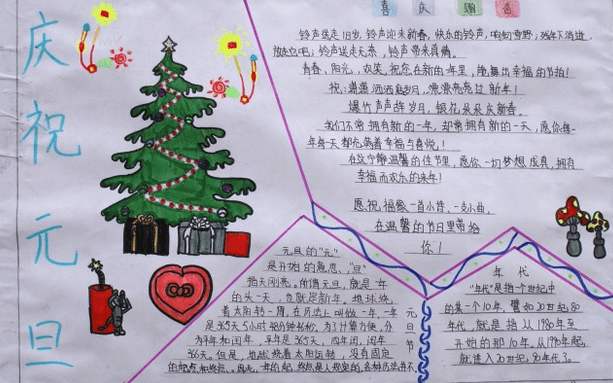 庆祝元旦
喜 庆 福
铃声送走旧岁,铃声迎来新春,快乐的铃声,响彻寰野;残年不消进,
放在心吧;铃声送走无奈,铃声带来真情。
青春,阳光,欢笑,祝您在新的年里,能舞出幸福的节拍!
祝:潇潇洒洒忘岁月,漂漂亮亮过新年!
爆竹声声辞岁月,银花朵朵庆新春。
我们不常拥有新的一年,却常拥有新的一天,愿你每一
年每天都充满着幸福与喜悦!
在这宁静温馨的佳节里,愿你一切梦想成真,拥有
幸福而欢乐的来年!
愿祝福像一首小诗,一支小曲,
在温馨的节日里带给
你!
元旦的"元"
是开始的意思,"旦"
指天刚亮。所谓元旦,就是一年
的头一天,也就是新年。地球绕
着太阳转一周,在历法上叫做一年,一年
是365天5小时48分钟46秒,为了计算方便,分
为平年和闰年,平年是365天,四年闰,闰年
366天。但是,地球绕着太阳运转,没有固定
的起点和终点。因此,一年的起,终点是人规定的,各种历法并不
元旦节
年 代
"年代"是指一个世纪中
的某一个10年,譬如20世纪80
年代,就是指从1980年至
开始的那10年,从1990年起,
就进入20世纪90年代了。